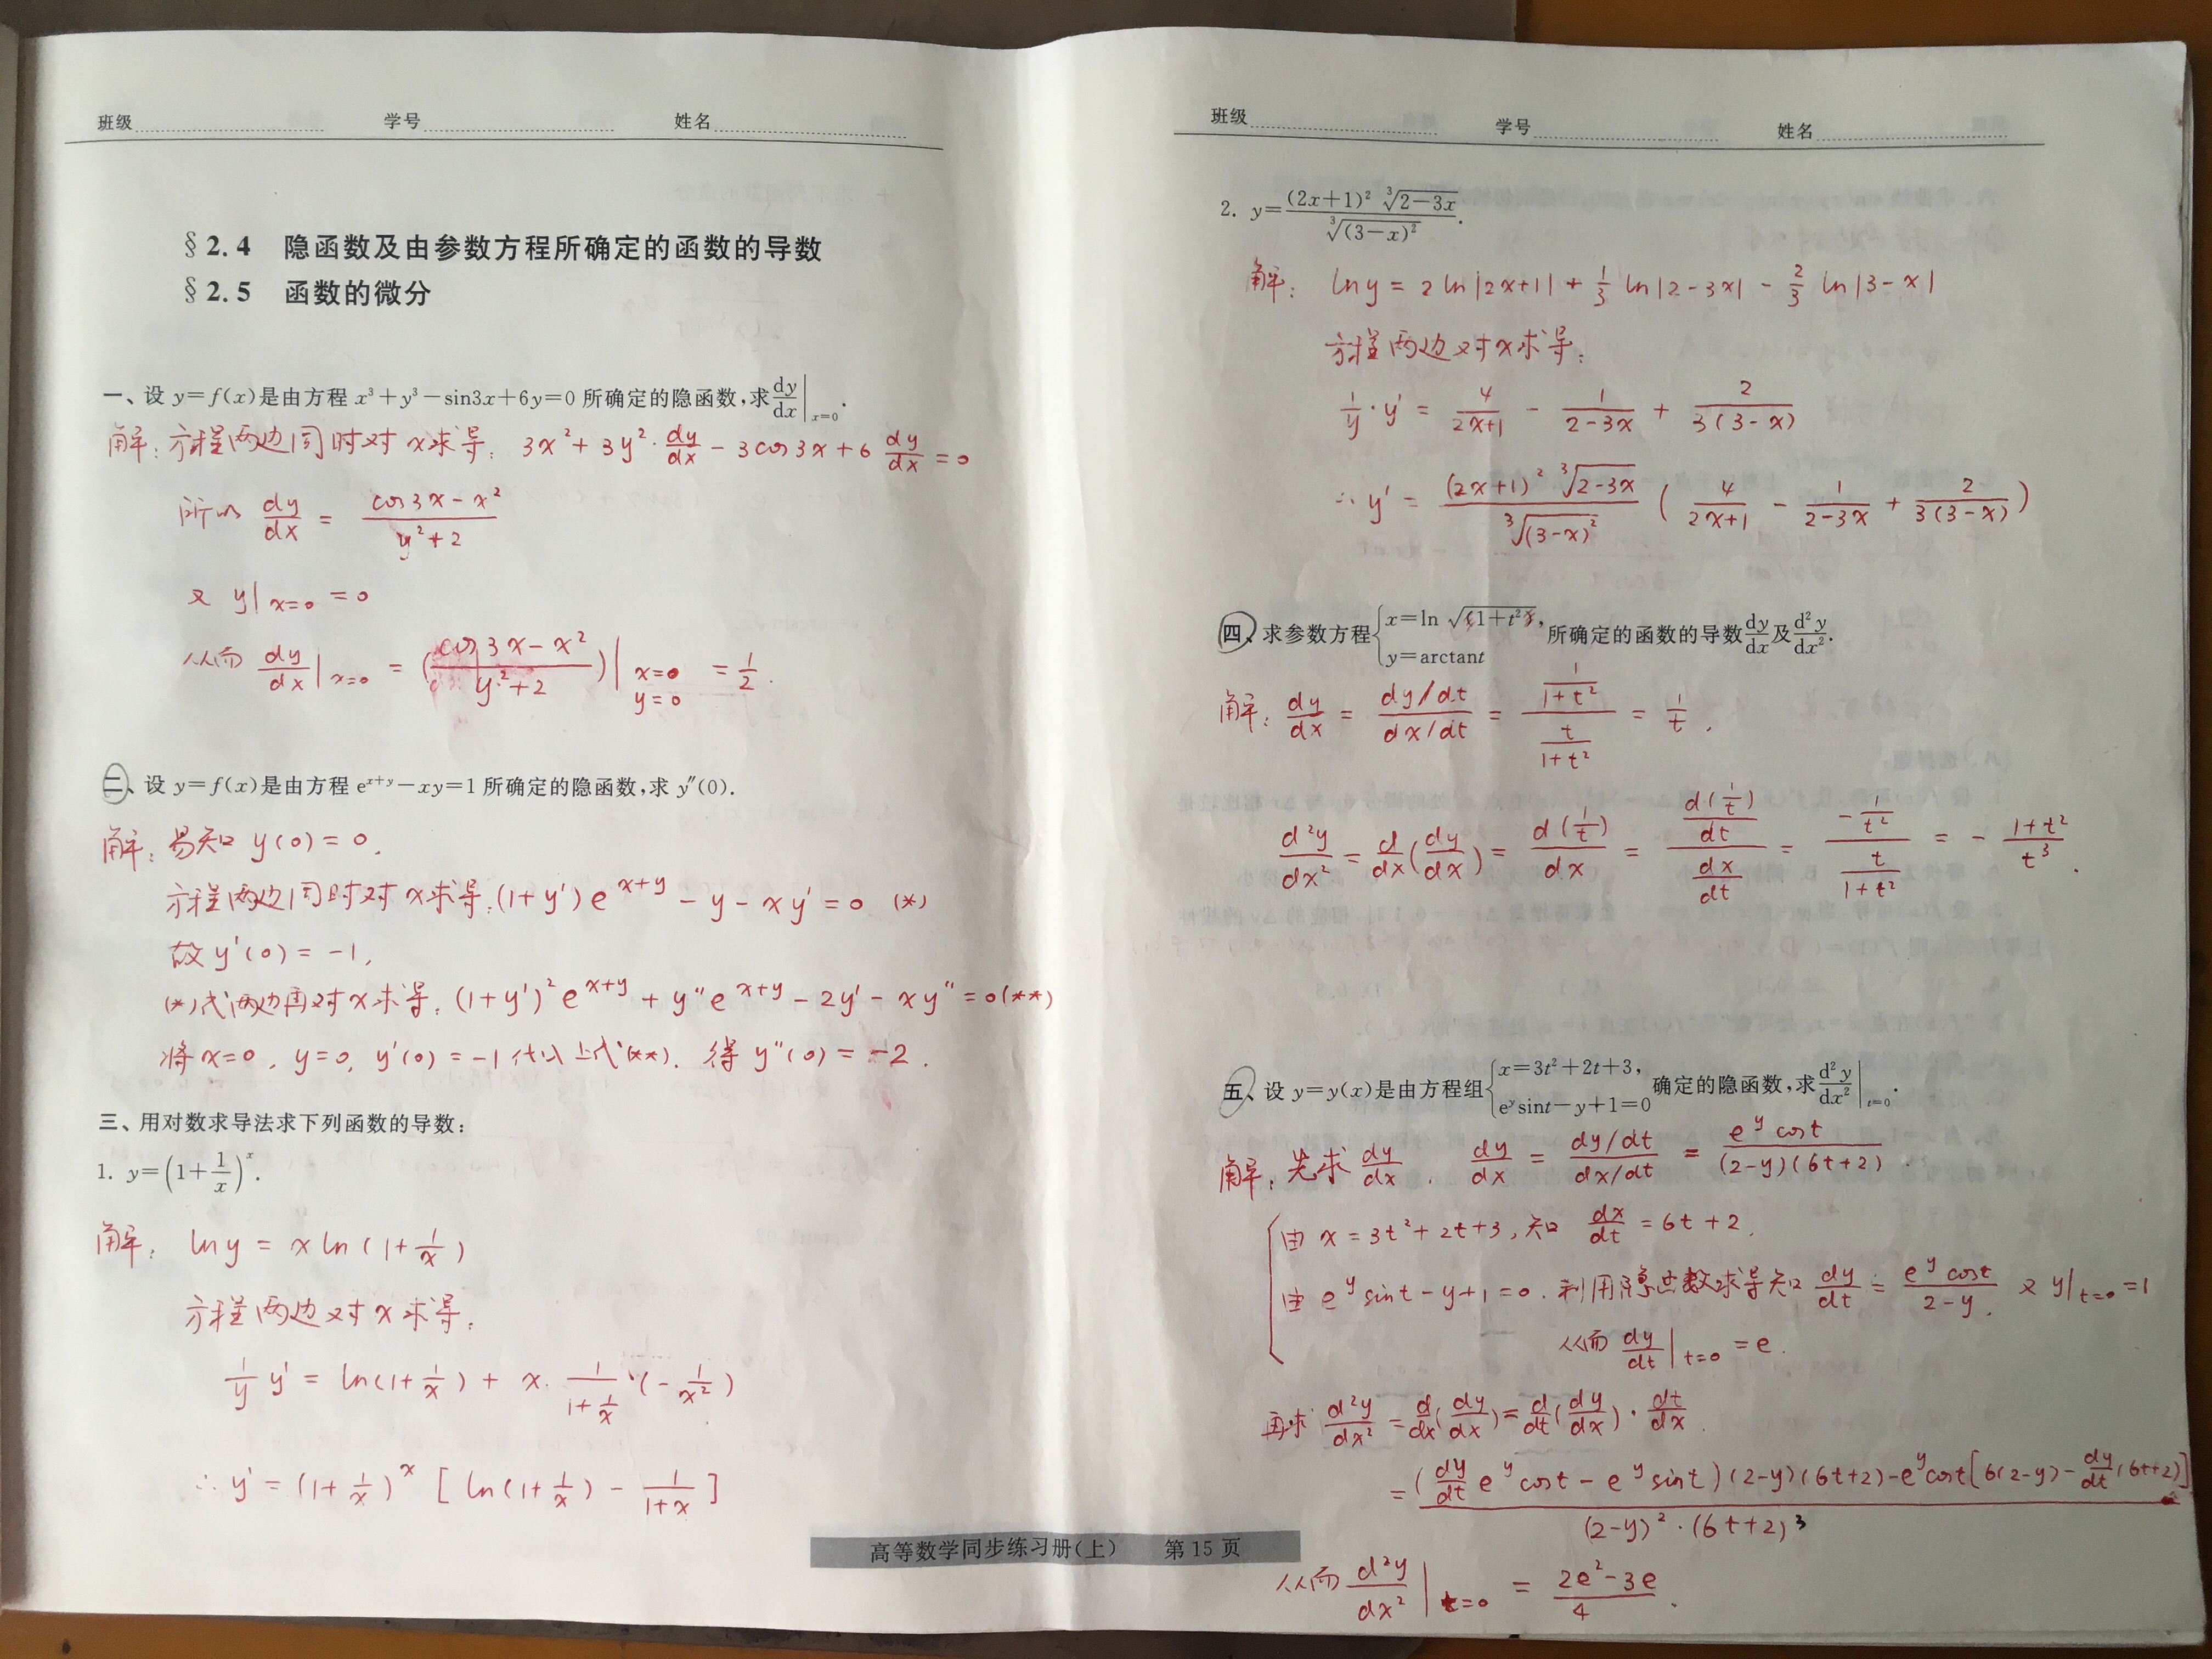 班级 学号 姓名
§2.4 隐函数及由参数方程所确定的函数的导数
§2.5 函数的微分
一、设 y=f(x)是由方程 x³+y³−sin3x+6y=0 所确定的隐函数,求dy/dx|x=0.
解:方程两边同时对x求导: 3x²+3y²·dy/dx−3cos3x+6 dy/dx=0
所以 dy/dx = (cos3x−x²)/(y²+2)
又 y|x=0 =0
从而 dy/dx|x=0 = ((cos3x−x²)/(y²+2))|x=0 y=0 = 1/2.
二、设 y=f(x)是由方程 e^(x+y)−xy=1 所确定的隐函数,求 y″(0).
解:易知 y(0)=0,
方程两边同时对x求导:(1+y')e^(x+y)−y−xy'=0 (*)
故y'(0)=−1,
(*)式两边再对x求导:(1+y')²e^(x+y)+y″e^(x+y)−2y'−xy″=0(**)
将x=0, y=0, y'(0)=−1代入上式(**). 得 y″(0)=−2.
三、用对数求导法求下列函数的导数:
1. y=(1+1/x)^x.
解: lny = xln(1+1/x)
方程两边对x求导:
1/y y' = ln(1+1/x) + x·1/(1+1/x)·(−1/x²)
∴ y'=(1+1/x)^x [ln(1+1/x) − 1/(1+x)]
班级 学号 姓名
2. y=(2x+1)² ∛(2−3x)/∛((3−x)²).
解: lny = 2ln|2x+1| + 1/3 ln|2−3x| − 2/3 ln|3−x|
方程两边对x求导:
1/y·y' = 4/(2x+1) − 1/(2−3x) + 2/(3(3−x))
∴ y' = (2x+1)² ∛(2−3x)/∛((3−x)²) (4/(2x+1) − 1/(2−3x) + 2/(3(3−x)))
四、求参数方程{x=ln √(1+t²), y=arctant 所确定的函数的导数dy/dx及d²y/dx².
解:dy/dx = (dy/dt)/(dx/dt) = (1/(1+t²))/(t/(1+t²)) = 1/t.
d²y/dx² = d/dx(dy/dx) = d(1/t)/dx = (d(1/t)/dt)/(dx/dt) = (−1/t²)/(t/(1+t²)) = −(1+t²)/t³.
五、设 y=y(x)是由方程组{x=3t²+2t+3, e^y sint−y+1=0 确定的隐函数,求d²y/dx²|t=0.
解:先求dy/dx. dy/dx = (dy/dt)/(dx/dt) = e^y cost/((2−y)(6t+2)).
由 x=3t²+2t+3,知 dx/dt=6t+2.
由 e^y sint−y+1=0.利用隐函数求导知dy/dt=e^y cost/(2−y). 又 y|t=0=1
从而 dy/dt|t=0=e.
再求 d²y/dx² = d/dx(dy/dx) = d/dt(dy/dx)·dt/dx.
= ((dy/dt e^y cost−e^y sint)(2−y)(6t+2)−e^y cost[6(2−y)−dy/dt(6t+2)])/((2−y)²·(6t+2)³)
从而 d²y/dx²|t=0 = (2e²−3e)/4.
高等数学同步练习册(上) 第15页